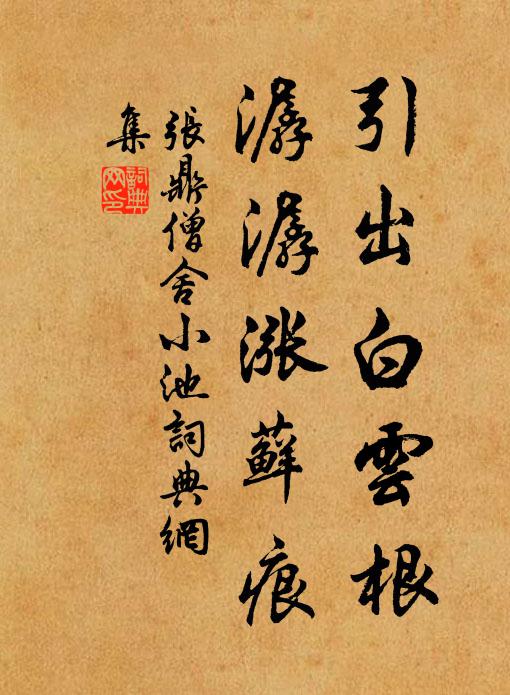 引出白雲根
潺潺漲蘚痕
張鼎僧舍小池詞典網
集
詞典网印